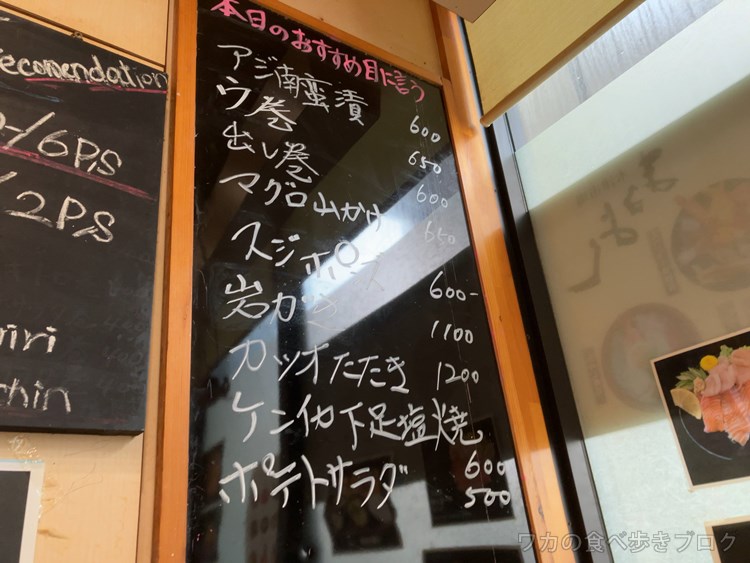 本日のおすすめ目に言う
アジ南蛮漬 600
ウ巻 650
出し巻 600
マグロ山かけ 650
スジポンズ 600-
岩カキ 1100
カツオたたき 1200
ケンイカ下足塩焼 600
ポテトサラダ 500
recomendation
/6P,S
/2P,S
ワカの食べ歩きブログ